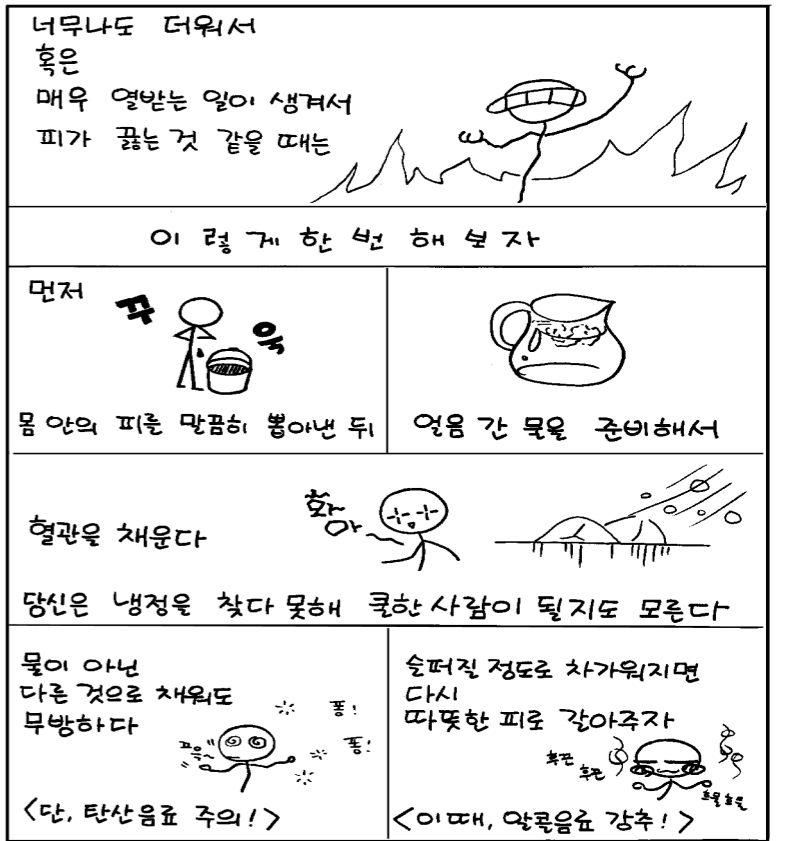 너무나도 더워서
혹은
매우 열받는 일이 생겨서
피가 끓는 것 같을 때는
이렇게 한 번 해보자
먼저
꾸
욱
몸 안의 피를 말끔히 뽑아낸 뒤
얼음 간 물을 준비해서
혈관을 채운다
화
아
당신은 냉정을 찾다 못해 쿨한 사람이 될지도 모른다
물이 아닌
다른 것으로 채워도
무방하다
퐁!
퐁!
끄윽~
<단, 탄산음료 주의!>
슬퍼질 정도로 차가워지면
다시
따뜻한 피로 갈아주자
후끈
후끈
흐물흐물
<이때, 알콜음료 강추!>